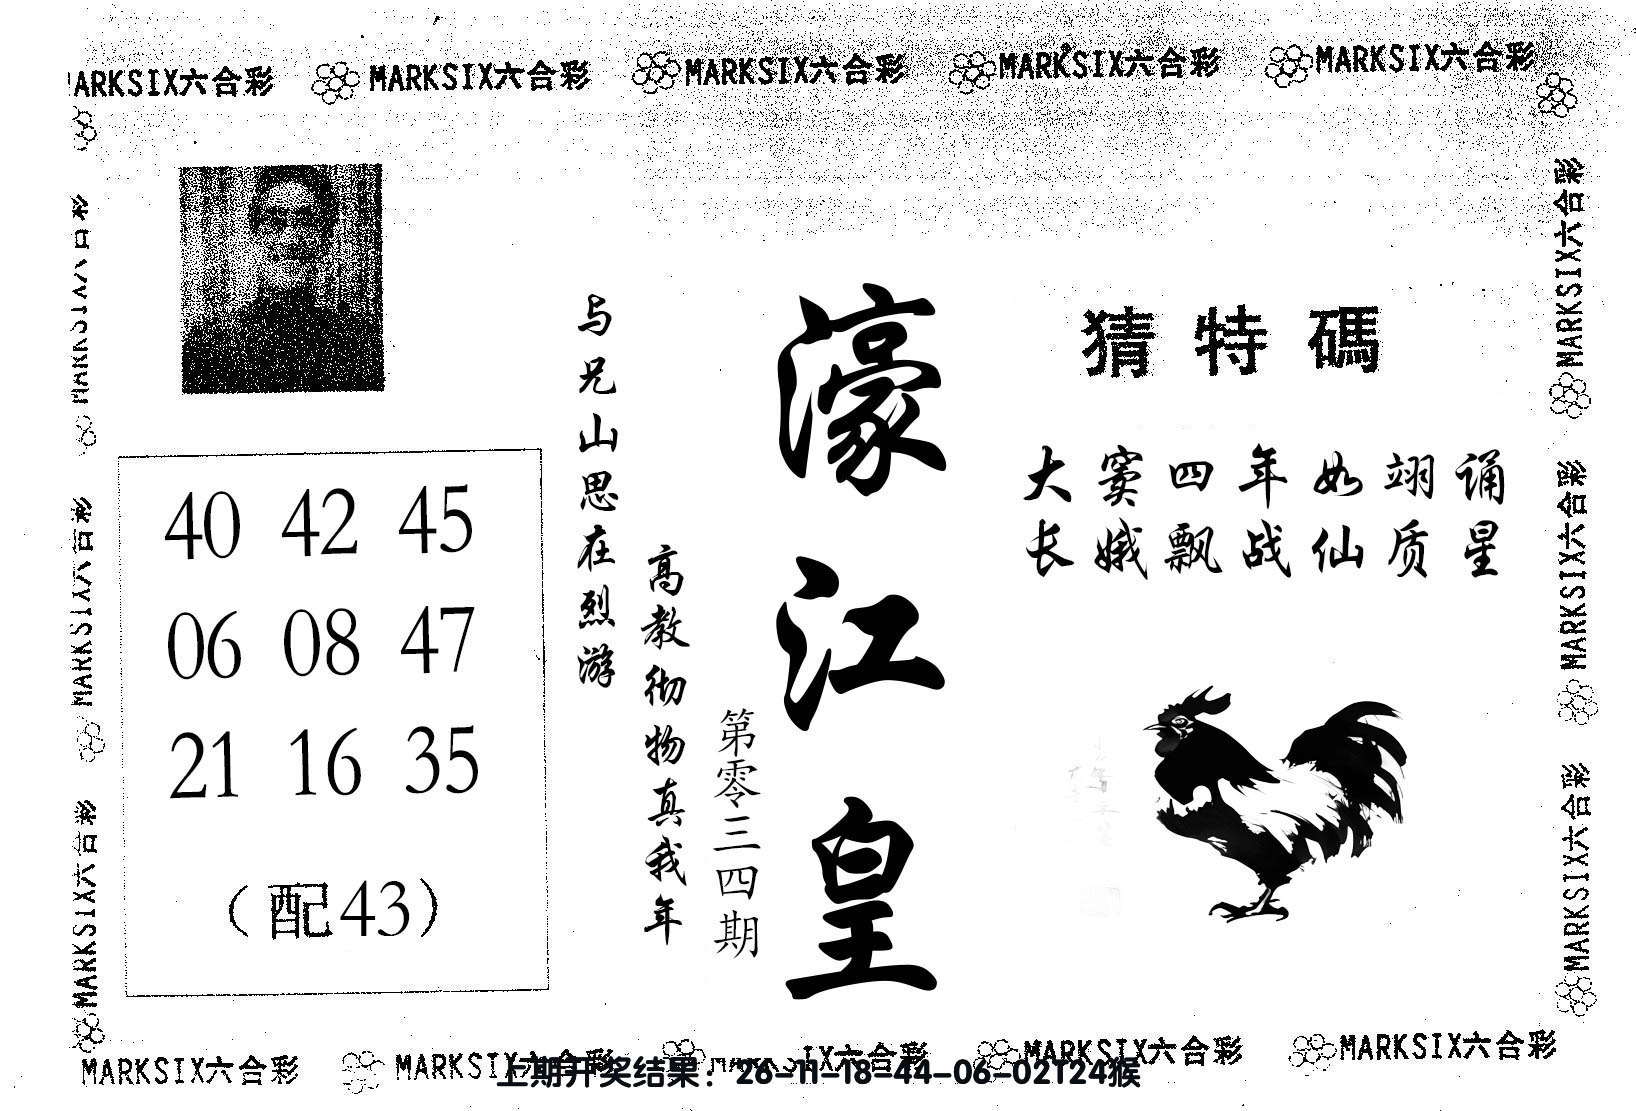 MARKSIX六合彩 MARKSIX六合彩 MARKSIX六合彩 MARKSIX六合彩 MARKSIX六合彩
猜特碼
大窦四年如翊诵
长娥飘战仙质星
濠江皇
第零三四期
与兄山思在烈游
高教彻物真我年
40 42 45
06 08 47
21 16 35
（配43）
MARKSIX六合彩
MARKSIX六合彩
MARKSIX六合彩
MARKSIX六合彩
MARKSIX六合彩
MARKSIX六合彩
MARKSIX六合彩 MARKSIX六合彩 MARKSIX六合彩 MARKSIX六合彩 MARKSIX六合彩
上期开奖结果：26-11-18-44-06-02T24猴